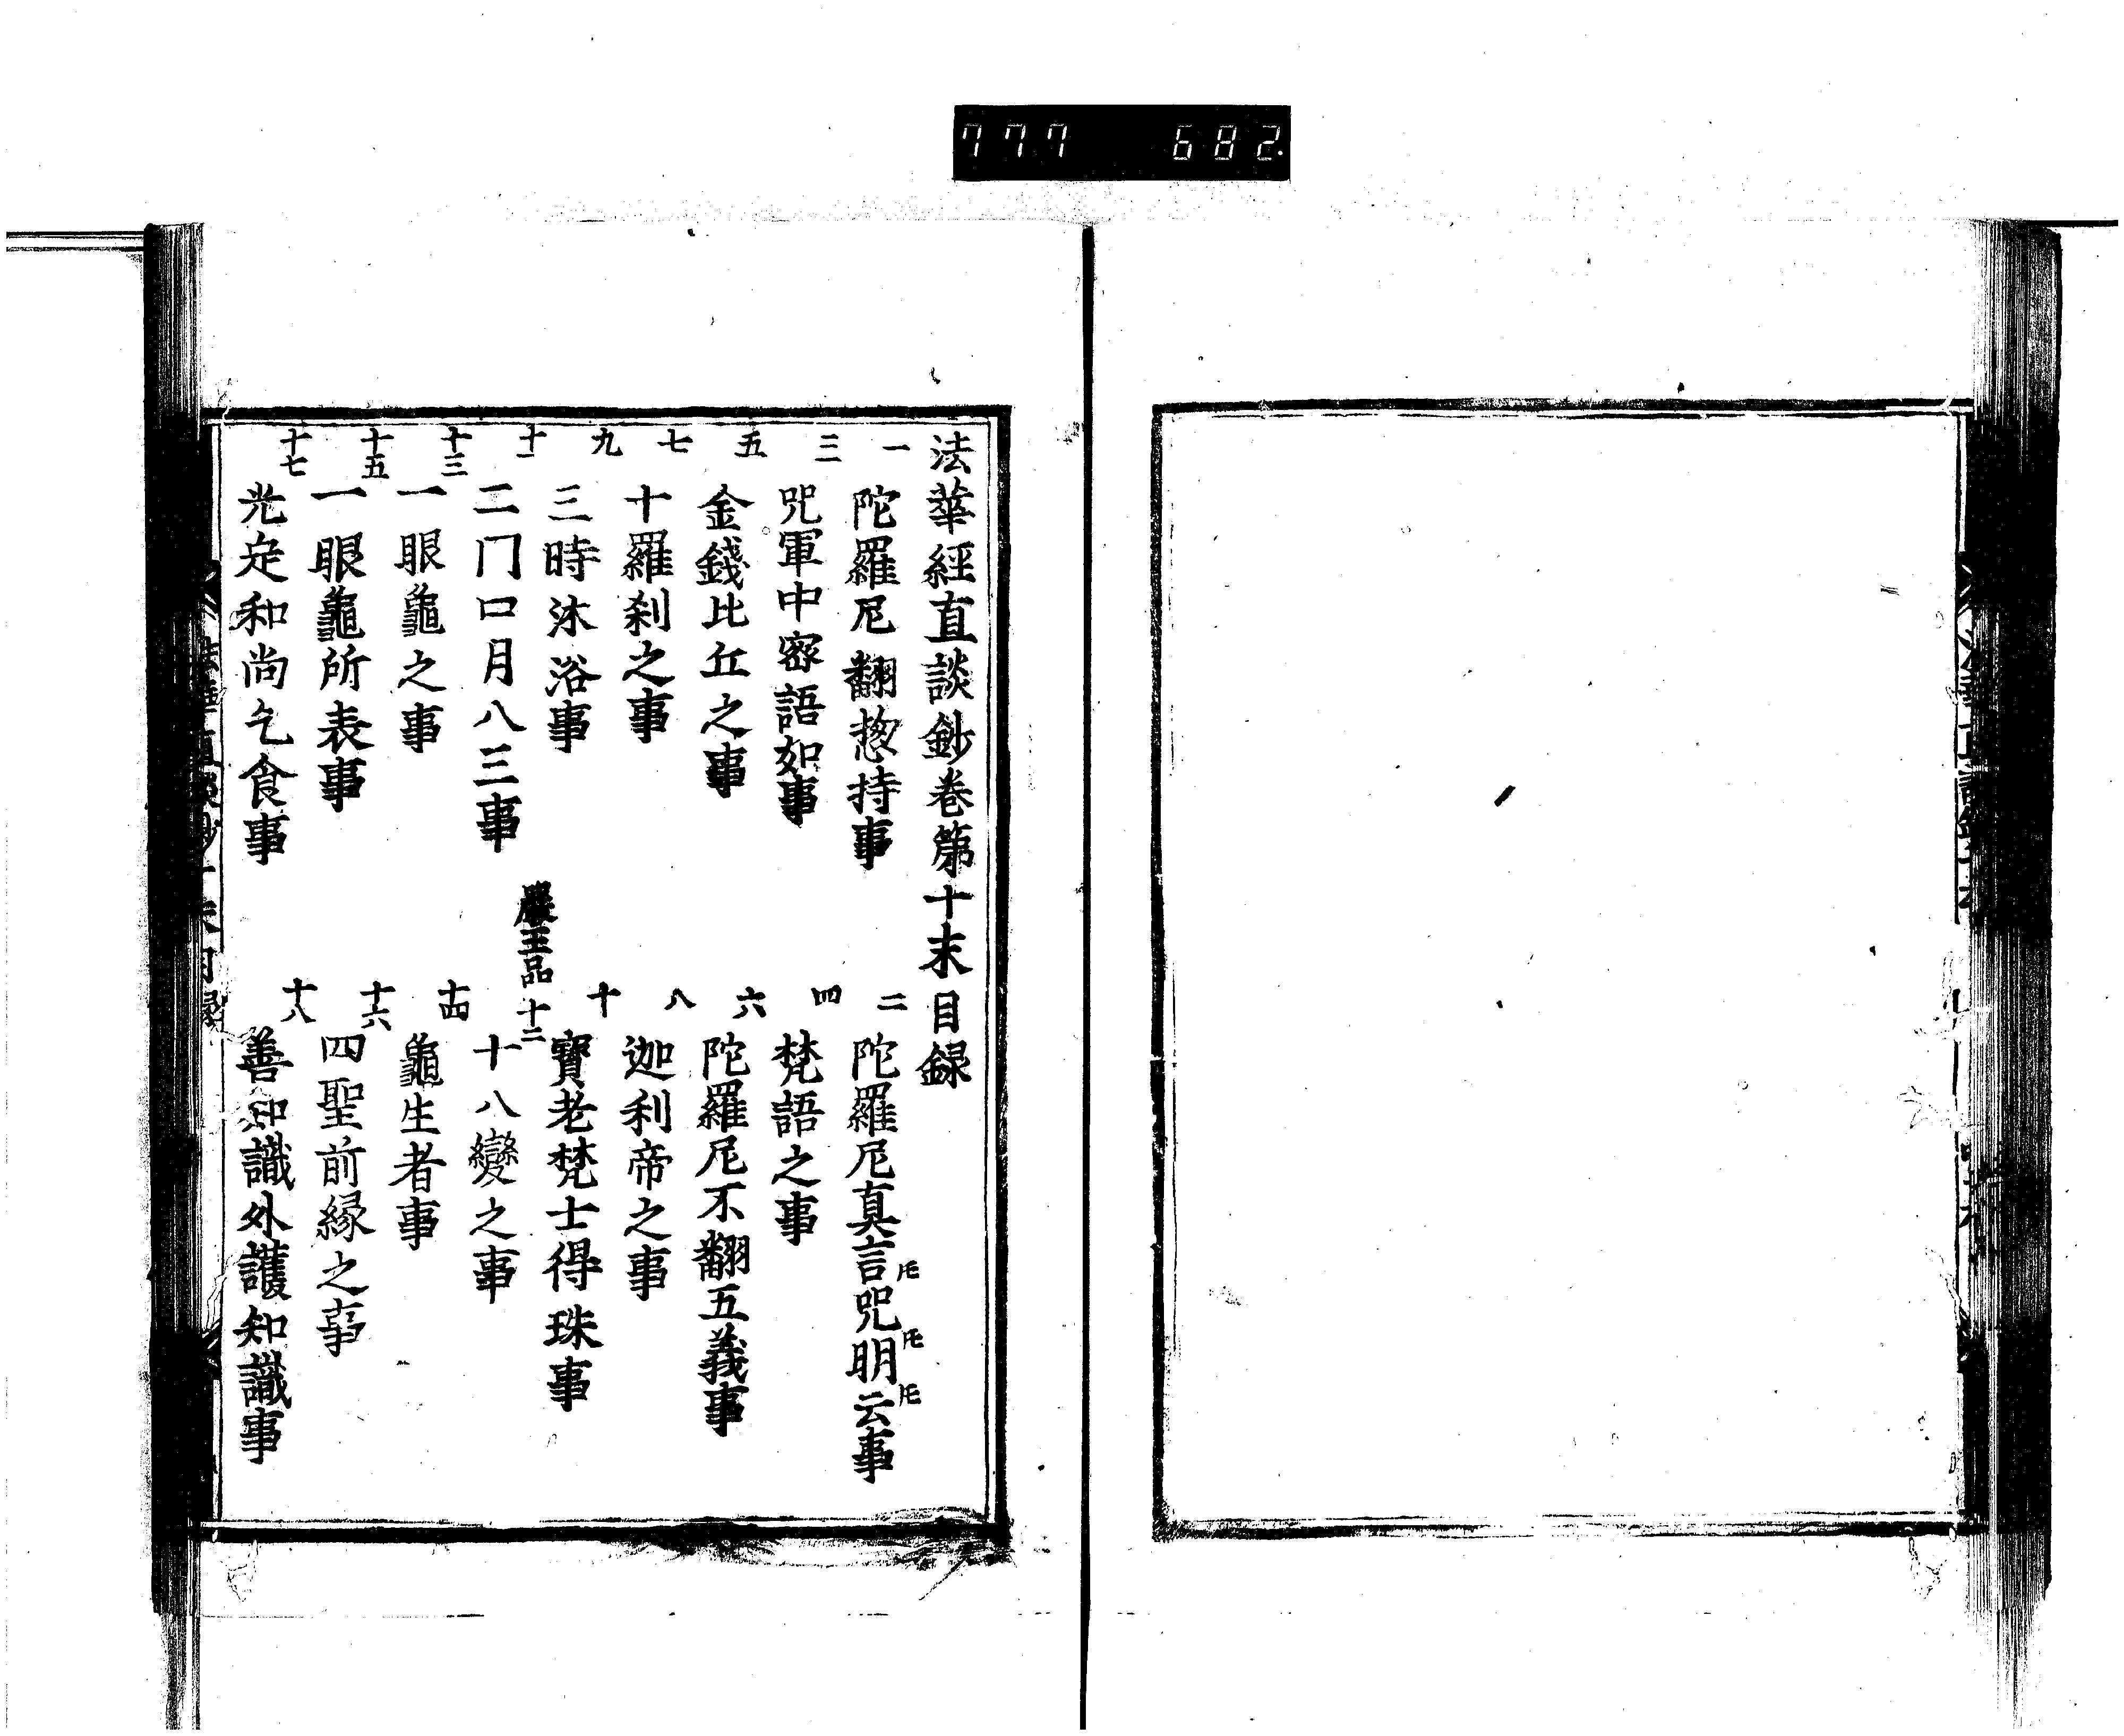 777 682
法華經直談鈔卷第十末目録
一 陀羅尼翻惣持事
二 陀羅尼真言𪜈咒𪜈明𪜈云事
三 咒軍中密語如事
四 梵語之事
五 金錢比丘之事
六 陀羅尼不翻五義事
七 十羅刹之事
八 迦利帝之事
九 三時沐浴事
十 寳老梵士得珠事
嚴王品
十一 二门口月八三事
十二 十八變之事
十三 一眼龜之事
十四 龜生者事
十五 一眼龜所表事
十六 四聖前縁之事
十七 光定和尚乞食事
十八 善知識外護知識事